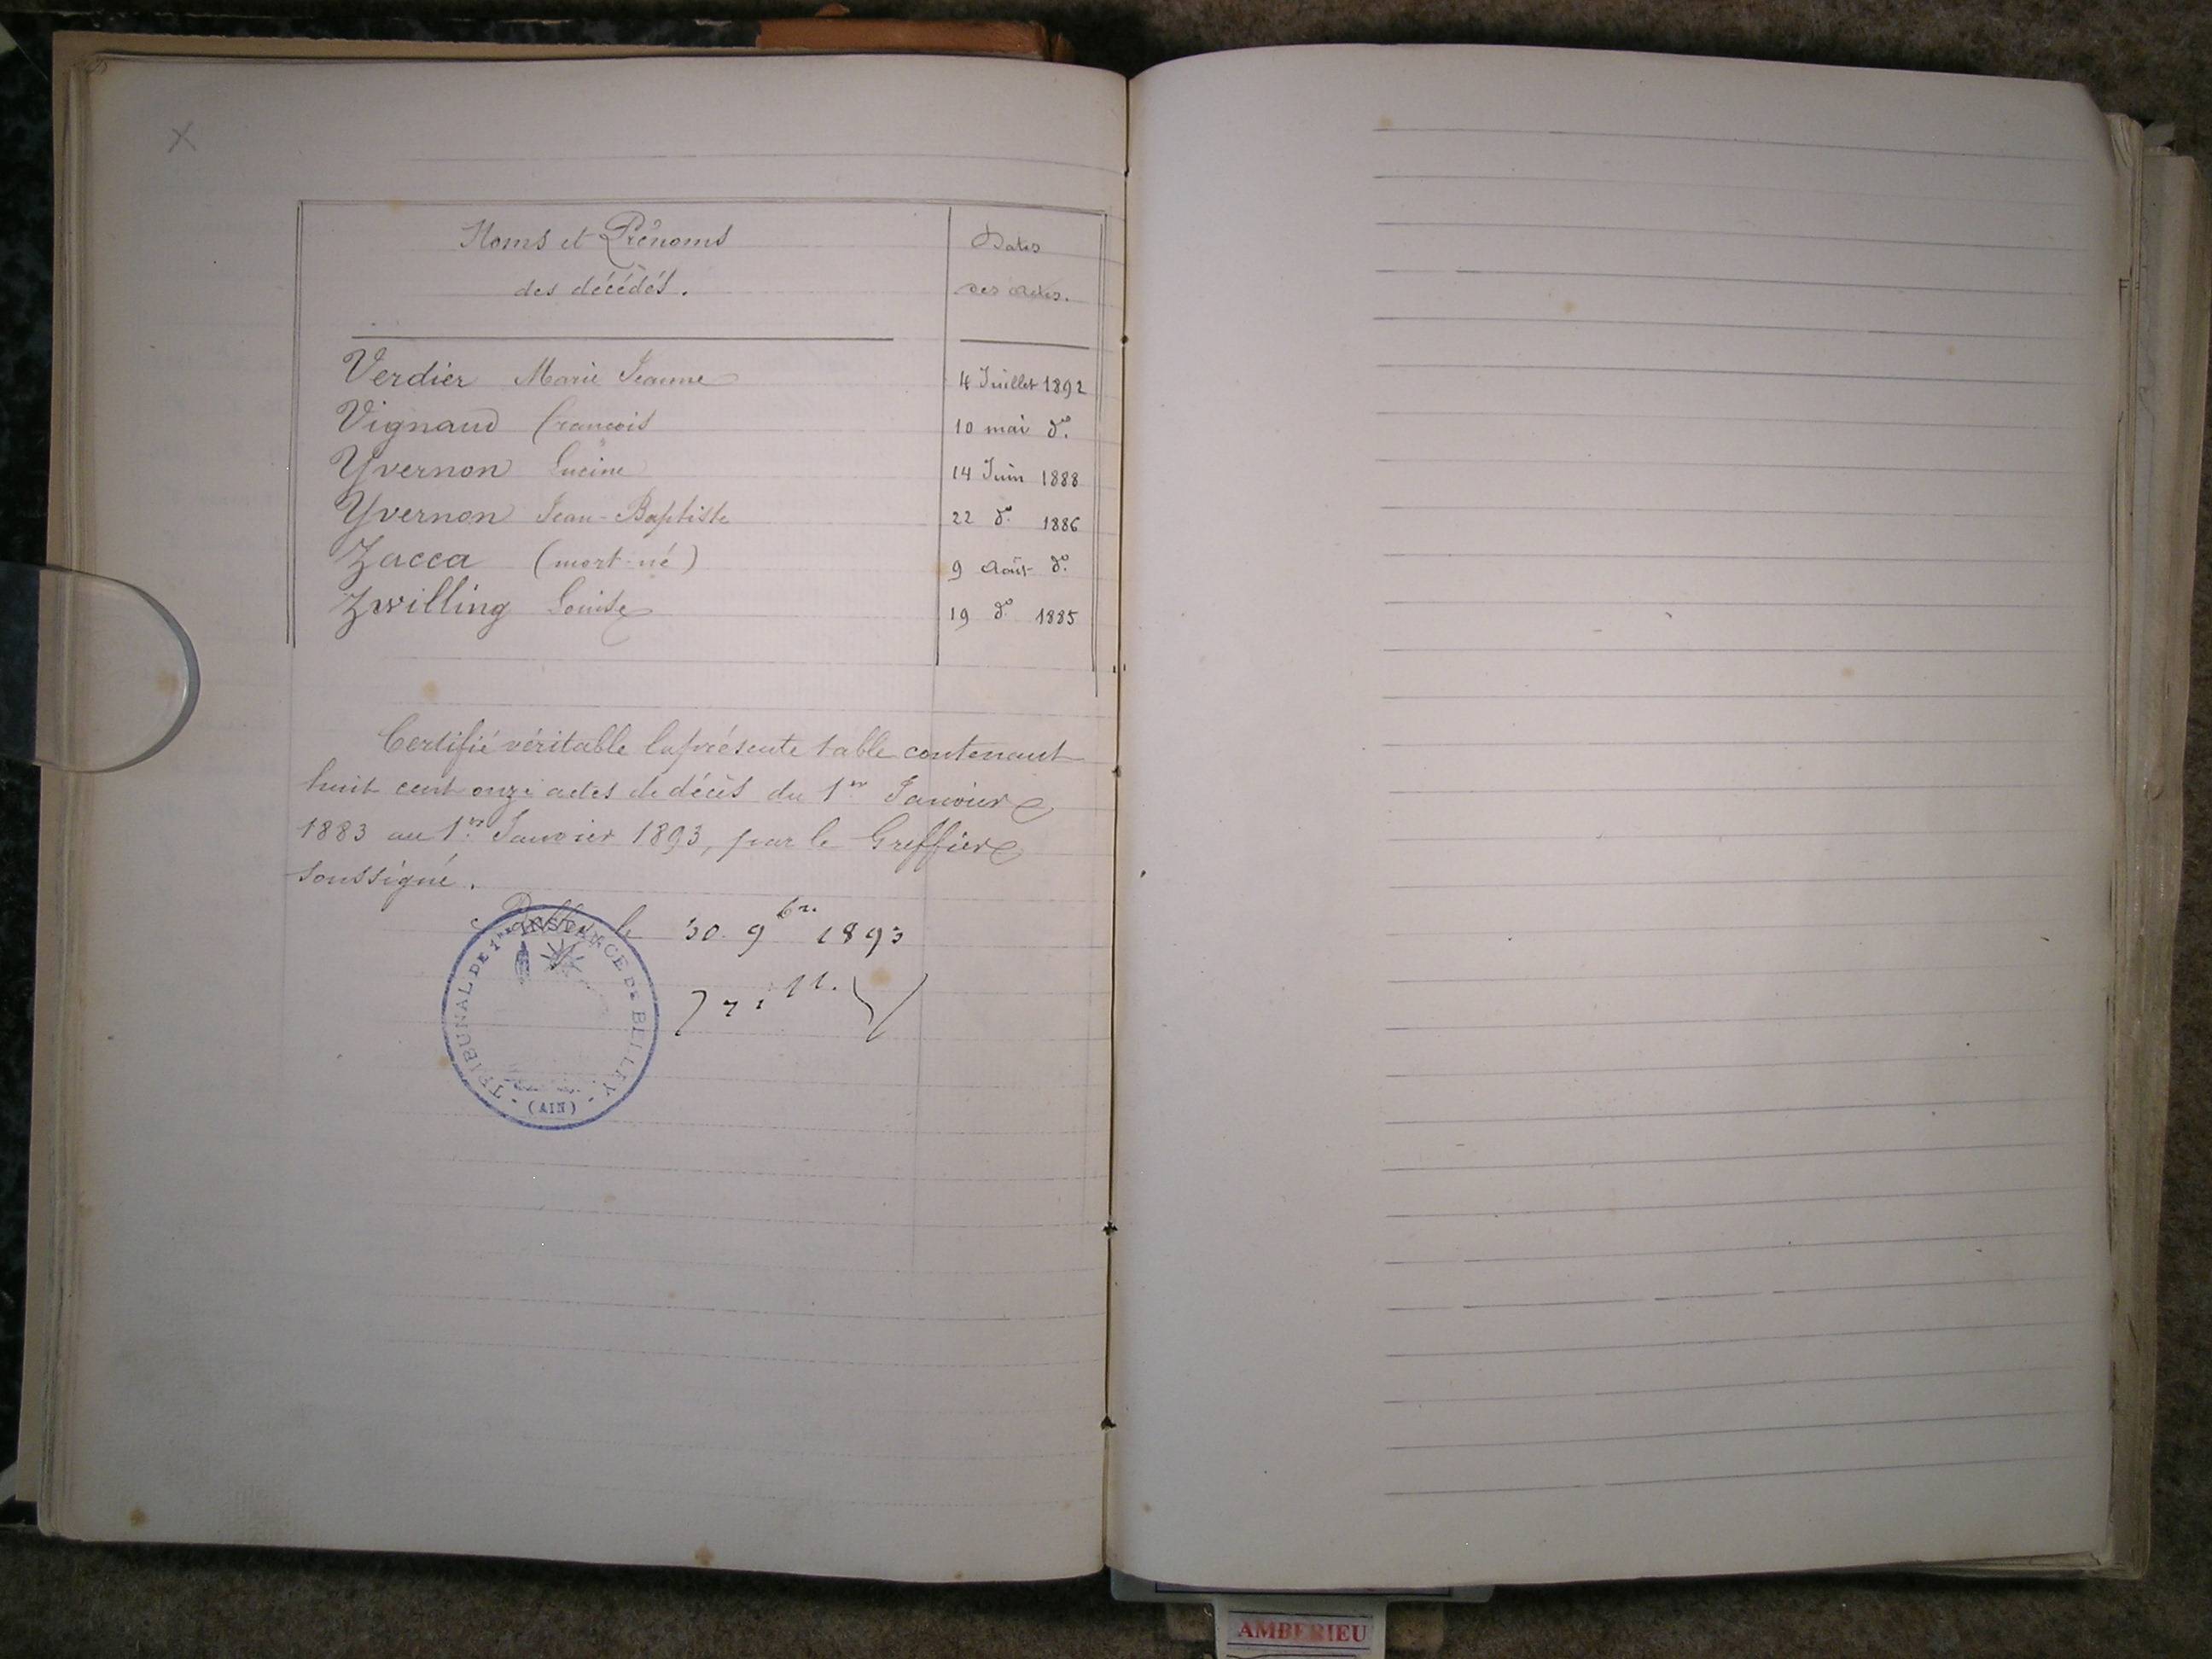 Noms et Prénoms
des décédés.
Dates
des actes.
Verdier Marie Jeanne 4 Juillet 1892
Vignaud François 10 mai do.
Yvernon Lucine 14 Juin 1888
Yvernon Jean-Baptiste 22 do. 1886
Zacca (mort-né) 9 Août do.
Zwilling Louise 19 do. 1885
Certifié véritable la présente table contenant
huit cent onze actes de décès du 1er Janvier
1883 au 1er Janvier 1893, par le Greffier
soussigné.
Belley le 30 9bre 1893
TRIBUNAL DE 1re INSTANCE DE BELLEY
(AIN)
AMBERIEU